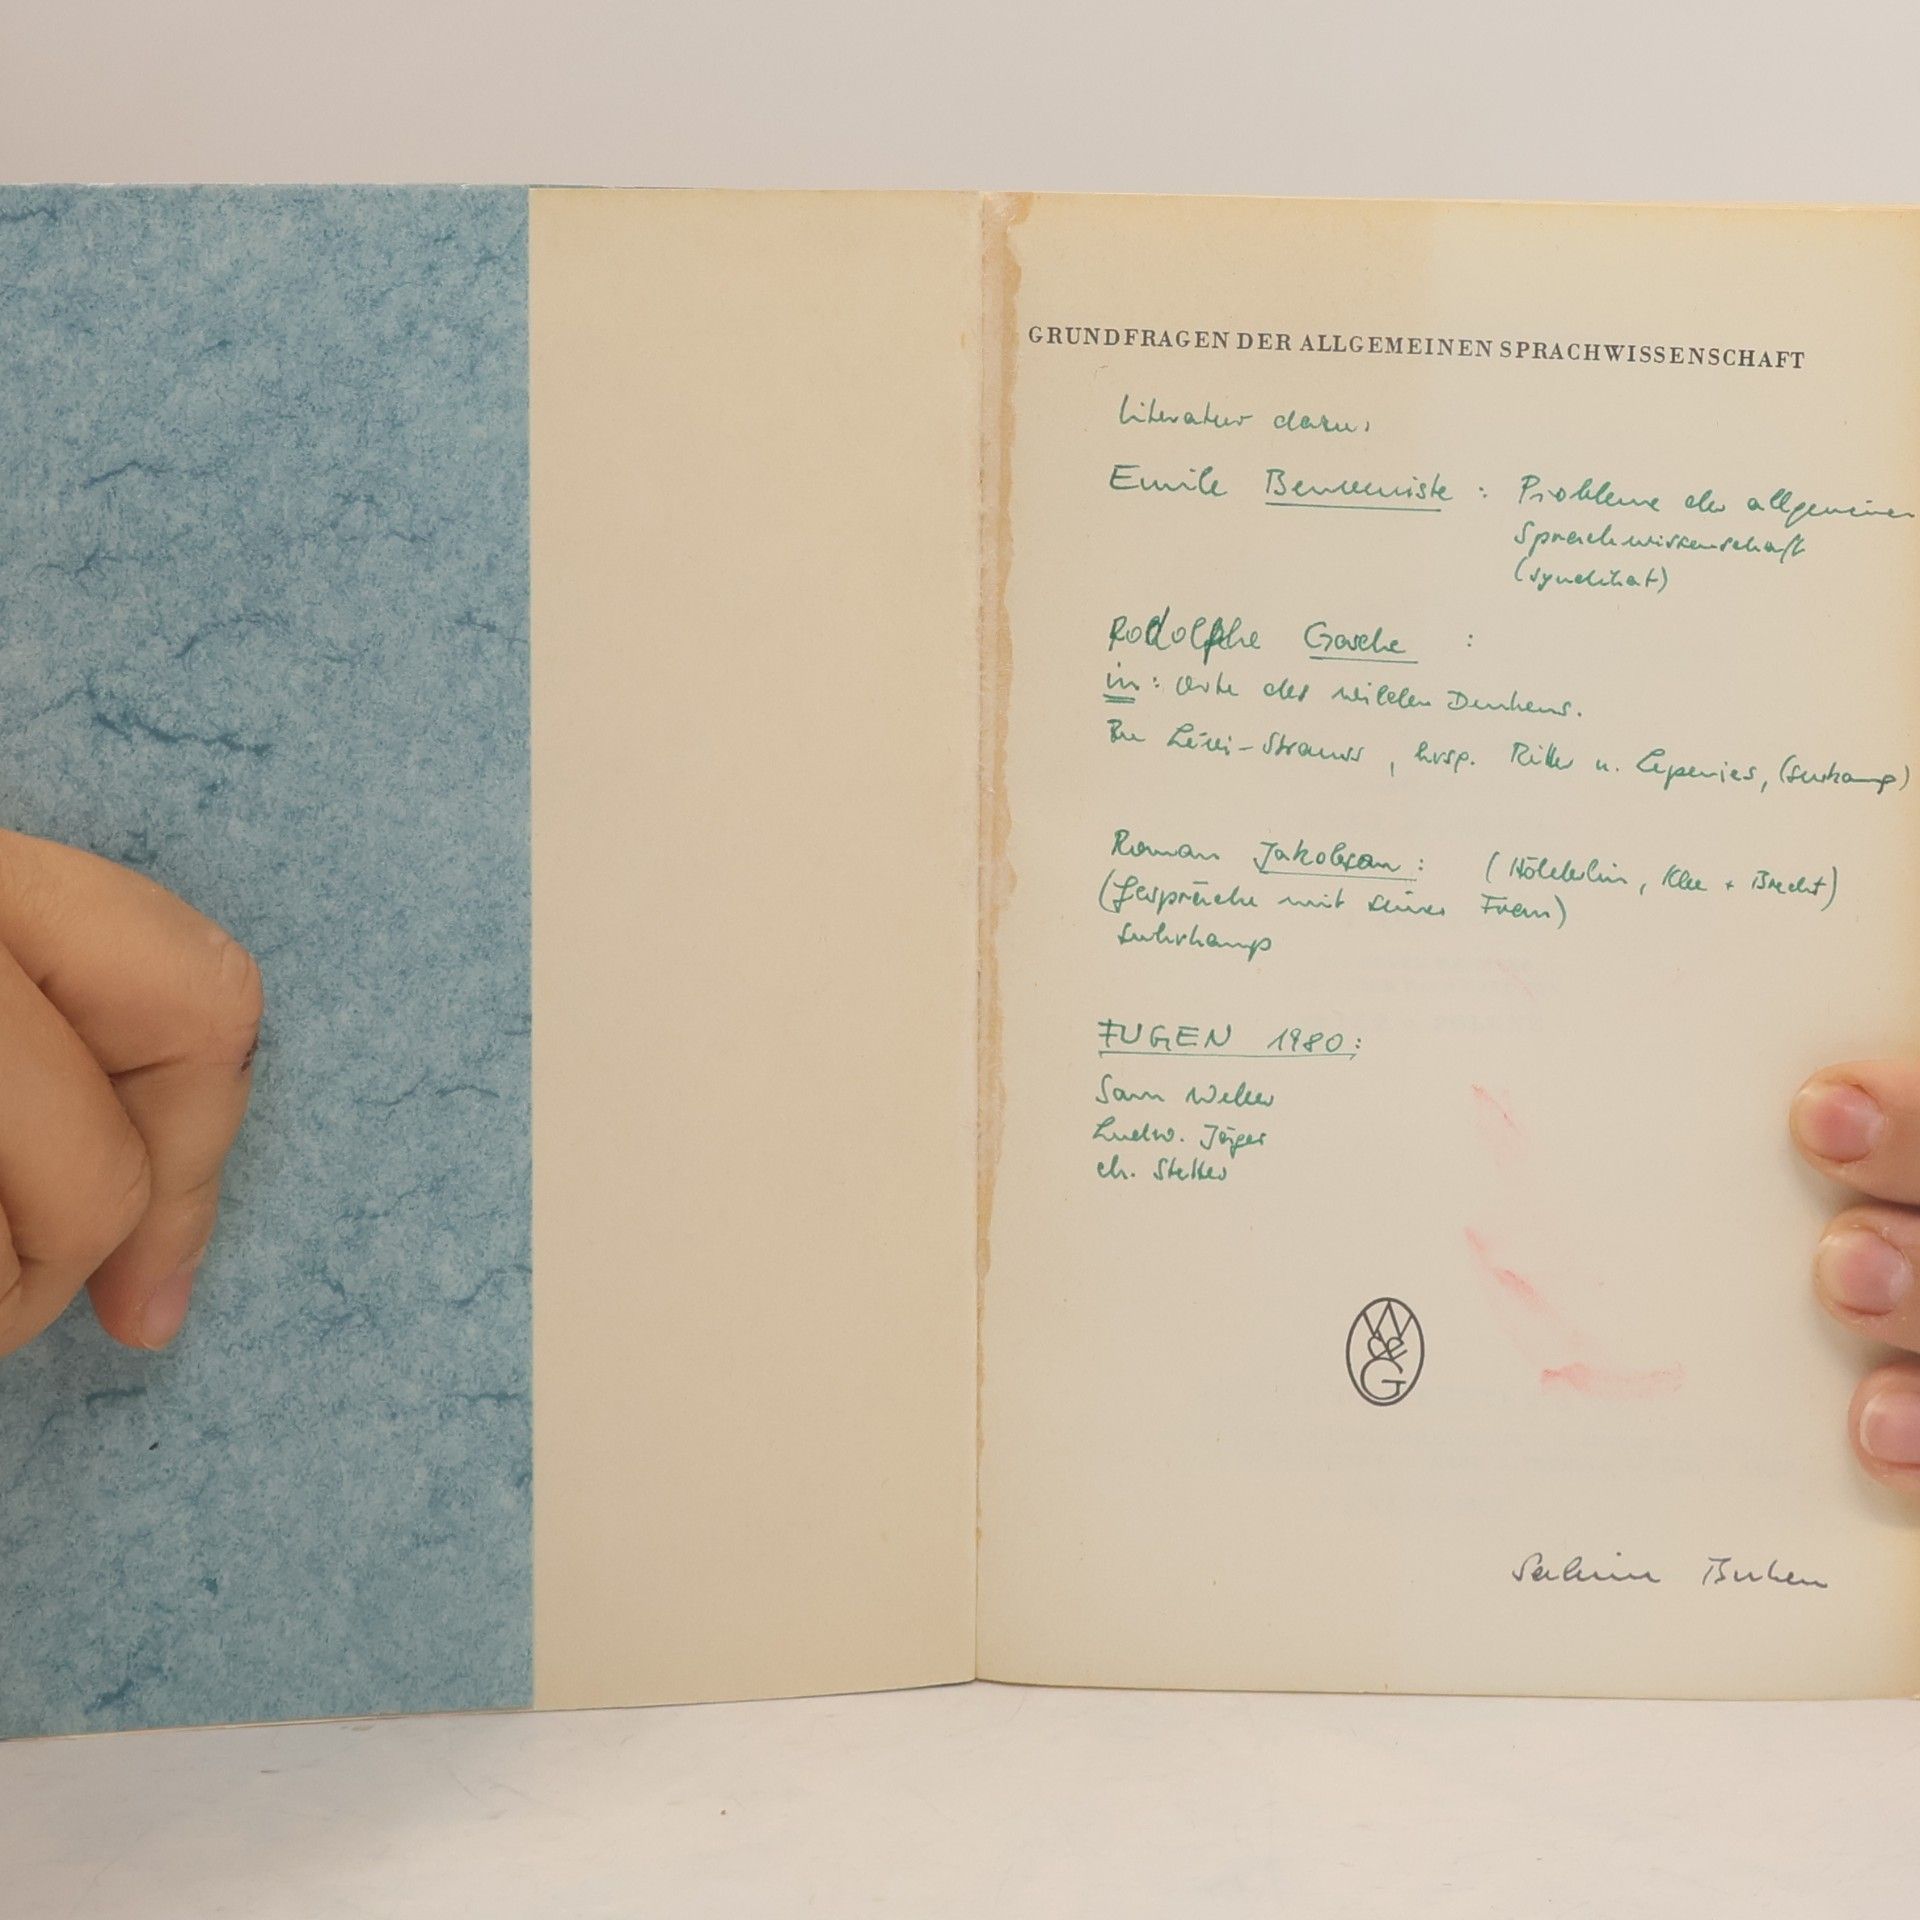 GRUNDFRAGEN DER ALLGEMEINEN SPRACHWISSENSCHAFT
Literatur dazu:
Emile Benveniste : Probleme der allgemeinen
Sprachwissenschaft
(Syndikat)
Rodolphe Gasche :
in: Orte des wilden Denkens.
Zu Lévi-Strauss, hrsg. Ritter u. Lepenies, (Surkamp)
Roman Jakobson: (Hölderlin, Klee + Brecht)
(Gespräche mit seiner Frau)
Suhrkamp
FUGEN 1980:
Sam Weber
Ludw. Jäger
Ch. Stetter
W&G